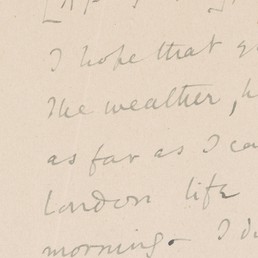 I hope that
the weather,
as far as I
London life
morning. I